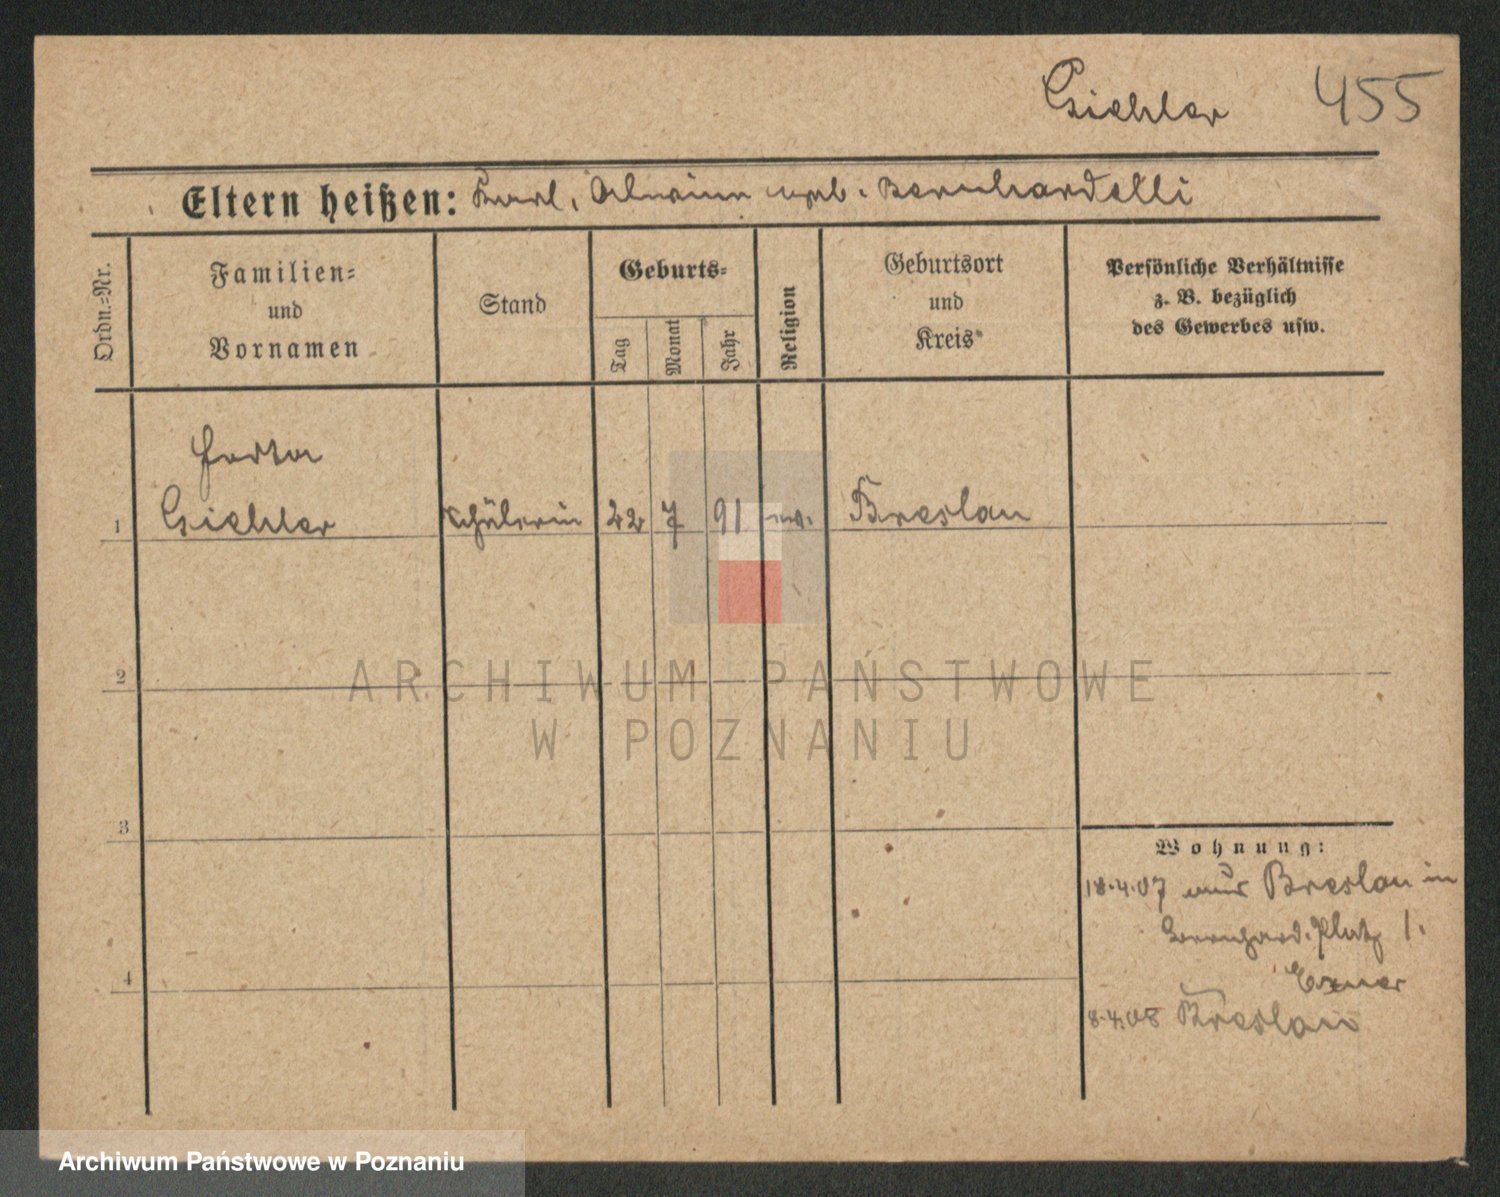 Giehler 455
Eltern heißen: Karl, geb. Bernhardelli
Ordn.=Nr.
Familien=
und
Vornamen
Stand
Geburts=
Tag
Monat
Jahr
Religion
Geburtsort
und
Kreis
Persönliche Verhältnisse
z. B. bezüglich
des Gewerbes usw.
Herta
1 Giehler Schülerin 22 7 91 ev. Breslau
2
ARCHIWUM PAŃSTWOWE
W POZNANIU
3
Wohnung:
18.4.07 aus Breslau in
Bernhard. Platz 1.
Exner
4
8.4.08 Breslau
Archiwum Państwowe w Poznaniu